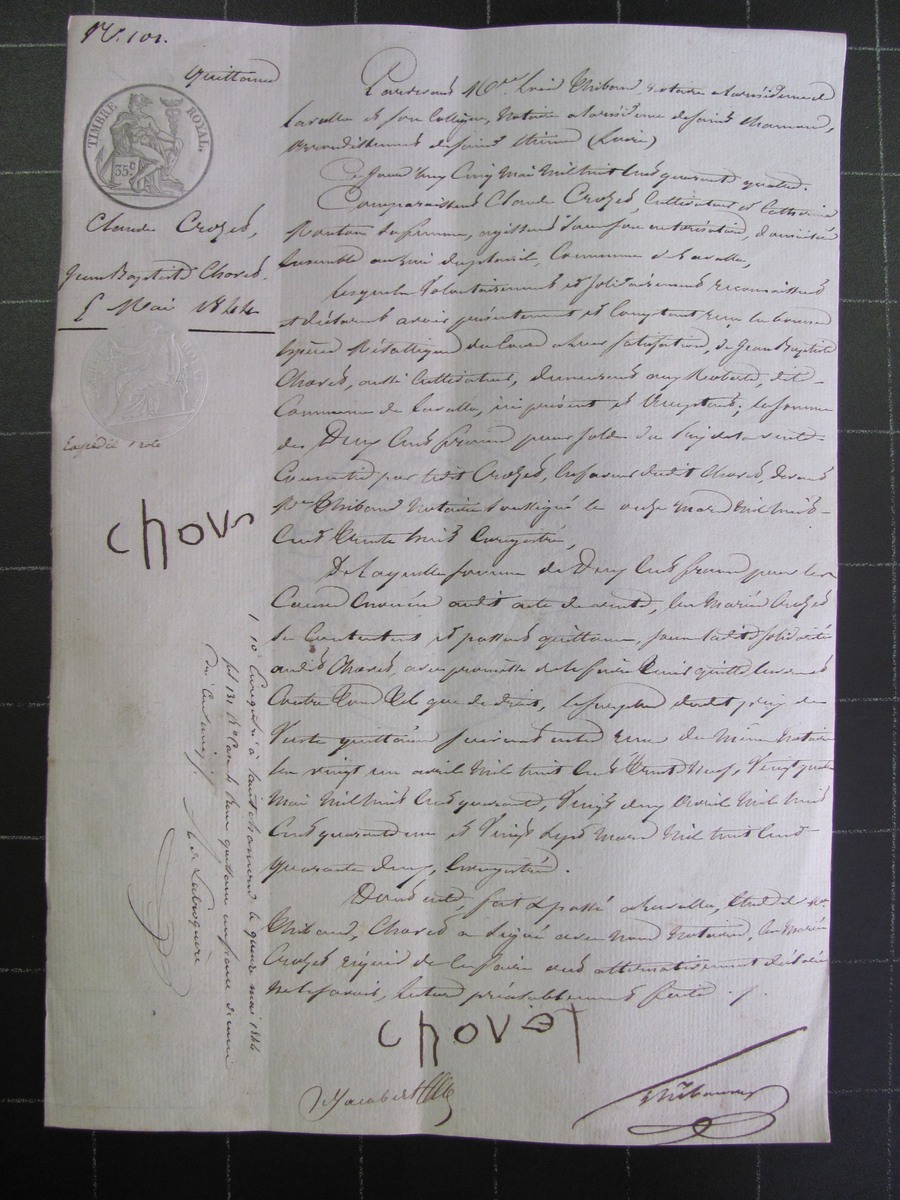 N.° 101.
quittance
TIMBRE ROYAL
35 c
Claude Crozet,
Jean Baptiste Chovet
5 Mai 1844
Expédié 1 role
Chov
Pardevant Me Thibaud, notaire à la résidence de
Lavalla et son Collègue, Notaire à la résidence de Saint Chamond,
arrondissement de Saint Etienne (Loire)
Ce jourd'huy Cinq Mai Mil huit Cent quarante quatre.
Comparaissent Claude Crozet, Cultivateur et Catherine
sa femme, agissant sous son autorisation, domiciliés
ensemble au lieu Commune de Lavalla,
Lesquels Volontairement et solidairement reconnaissent
et déclarent avoir présentement et Comptant reçu en bonnes
espèces Métalliques du Cours à leur satisfation, de Jean Baptiste
Chovet, aussi Cultivateur, demeurant aux dite
Commune de Lavalla, ici présent et acceptant; la somme
de Deux Cents francs pour solde du Prix de la vente
Consentie par ledit Crozet, en faveur dudit Chovet, devant
Me Thibaud Notaire soussigné le onze mars Mil huit
Cent trente huit Enregistré,
De laquelle somme de Deux Cents francs pour les
Causes énoncées audit acte de vente, les Mariés Crozet
se Contentent et passent quittance, sous ladite solidarité
audit Chovet, avec promesse de le faire tenir quitte envers et
Contre tous tels que de droit, le surplus dudit prix
quittances suivant actes reçus du même Notaire
les vingt un avril Mil huit Cent trente Neuf, Vingt quatre
Mai Mil huit Cent quarante, Vingt deux Avril Mil huit
Cent quarante un et Vingt sept Mars Mil huit Cent
quarante deux, Enregistrés.
Dont acte, fait et passé à Lavalla, Etude de Me
Thibaud, Chovet a signé avec Nous Notaires, les Mariés
Crozet requis de le faire ont alternativement déclaré
ne le savoir, lecture préalablement faite ./.
Chovet
Thibaud
Enregistré à Saint Chamond le quinze mai 1844